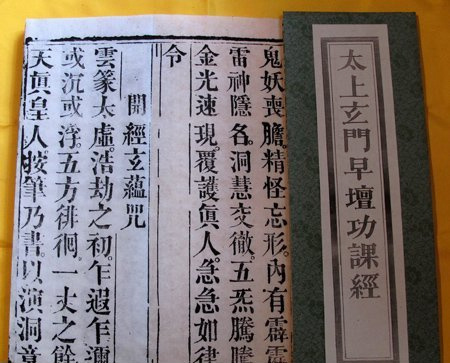 太上玄門早壇功課經
鬼妖喪膽。精怪忘形。內有霹靂
雷神隱名。洞慧交徹。五炁騰騰
金光速現。覆護真人。急急如律
令
開經玄蘊咒
雲篆太虛。浩劫之初。乍遐乍邇
或沉或浮。五方徘徊。一丈之餘
天真皇人。按筆乃書。以演洞章